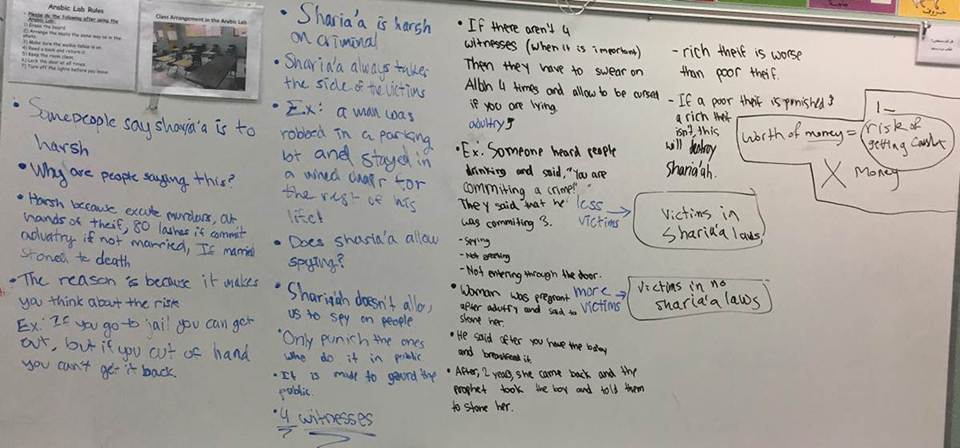 Arabic Lab Rules
Please do the following after using the
Arabic Lab:
1) Erase the board
2) Arrange the seats the same way as in the
photo.
4) Read a book and return it
5) Keep the room clean.
6) Lock the door at all times.
7) Turn off the lights before you leave
Class Arrangement in the Arabic Lab
• Some people say sharia'a is to
harsh
• Why are people saying this?
• Harsh because excute murdurs, cut
hands of theif, 80 lashes if commit
aduatry if not married, If married
stoned to death
• The reason is because it makes
you think about the risk
Ex: If you go to jail you can get
out, but if you cut of hand
you can't get it back.
• Sharia'a is harsh
on criminal
• Sharia'a always takes
the side of the victims
• Ex: a man was
robbed in a parking
lot and stayed in
a for
the rest of his
life!
• Does sharia'a allow
spying?
• Shariah doesn't allow
us to spy on people
• Only punish the ones
who do it in public
• It is made to gaurd the
public.
• 4 witnesses
• If there aren't 4
witnesses (when it is important)
Then they have to swear on
Allah 4 times and allow to be cursed
if you are lying.
adultry
• Ex: Someone heard people
drinking and said, "You are
commiting a crime!"
They said that he
was commiting 3.
- Spying
- Not greeting
- Not entering through the door.
• Woman was pregnant
after adultry and said to
stone her.
• He said after you have the baby
and breastfeed it.
• After, 2 years, she came back and the
prophet took the boy and told them
to stone her.
less
victims
victims in
sharia'a laws
more
victims
victims in no
sharia'a laws
- rich theif is worse
than poor theif.
- If a poor theif is punished &
a rich theif
isn't, this
will destroy
Shariah.
1
worth of money = risk of
getting caught
X Money